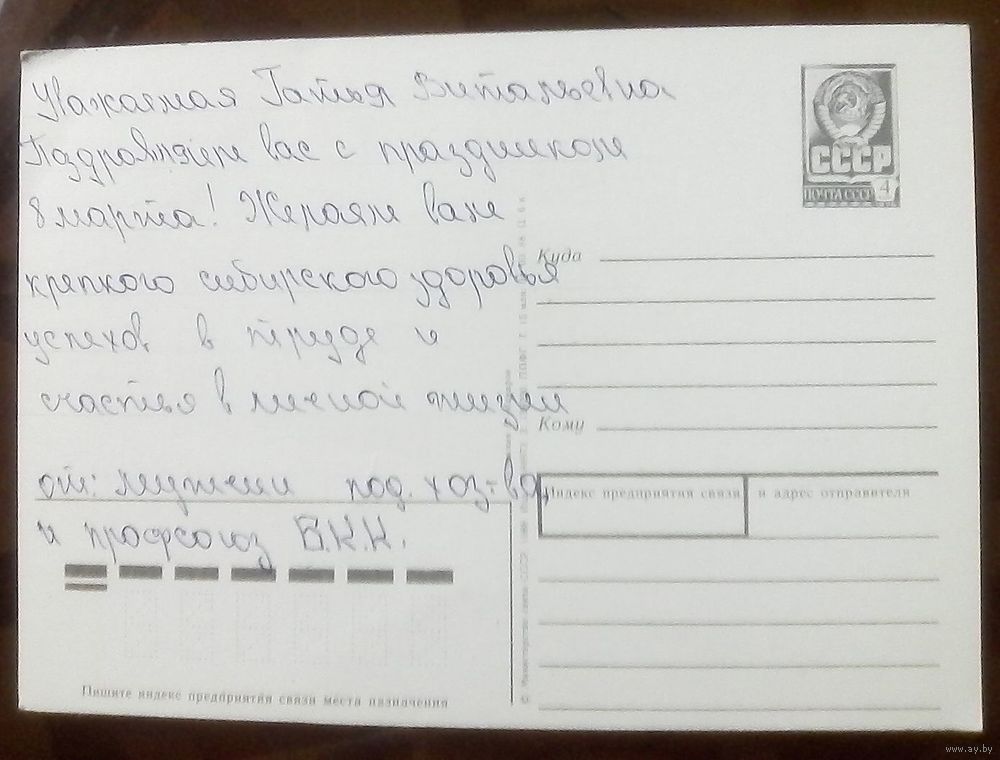 Уважаемая Виталевна
Поздравляем вас с праздником
8 марта! Желаем вам
крепкого сибирского здоровья
успехов в труде и
счастья в личной жизни
от: под. хоз-ва
и профсоюз Б.К.К.
СССР
ПОЧТА СССР 4
Куда
Кому
Индекс предприятия связи и адрес отправителя
Пишите индекс предприятия связи места назначения
www.ay.by